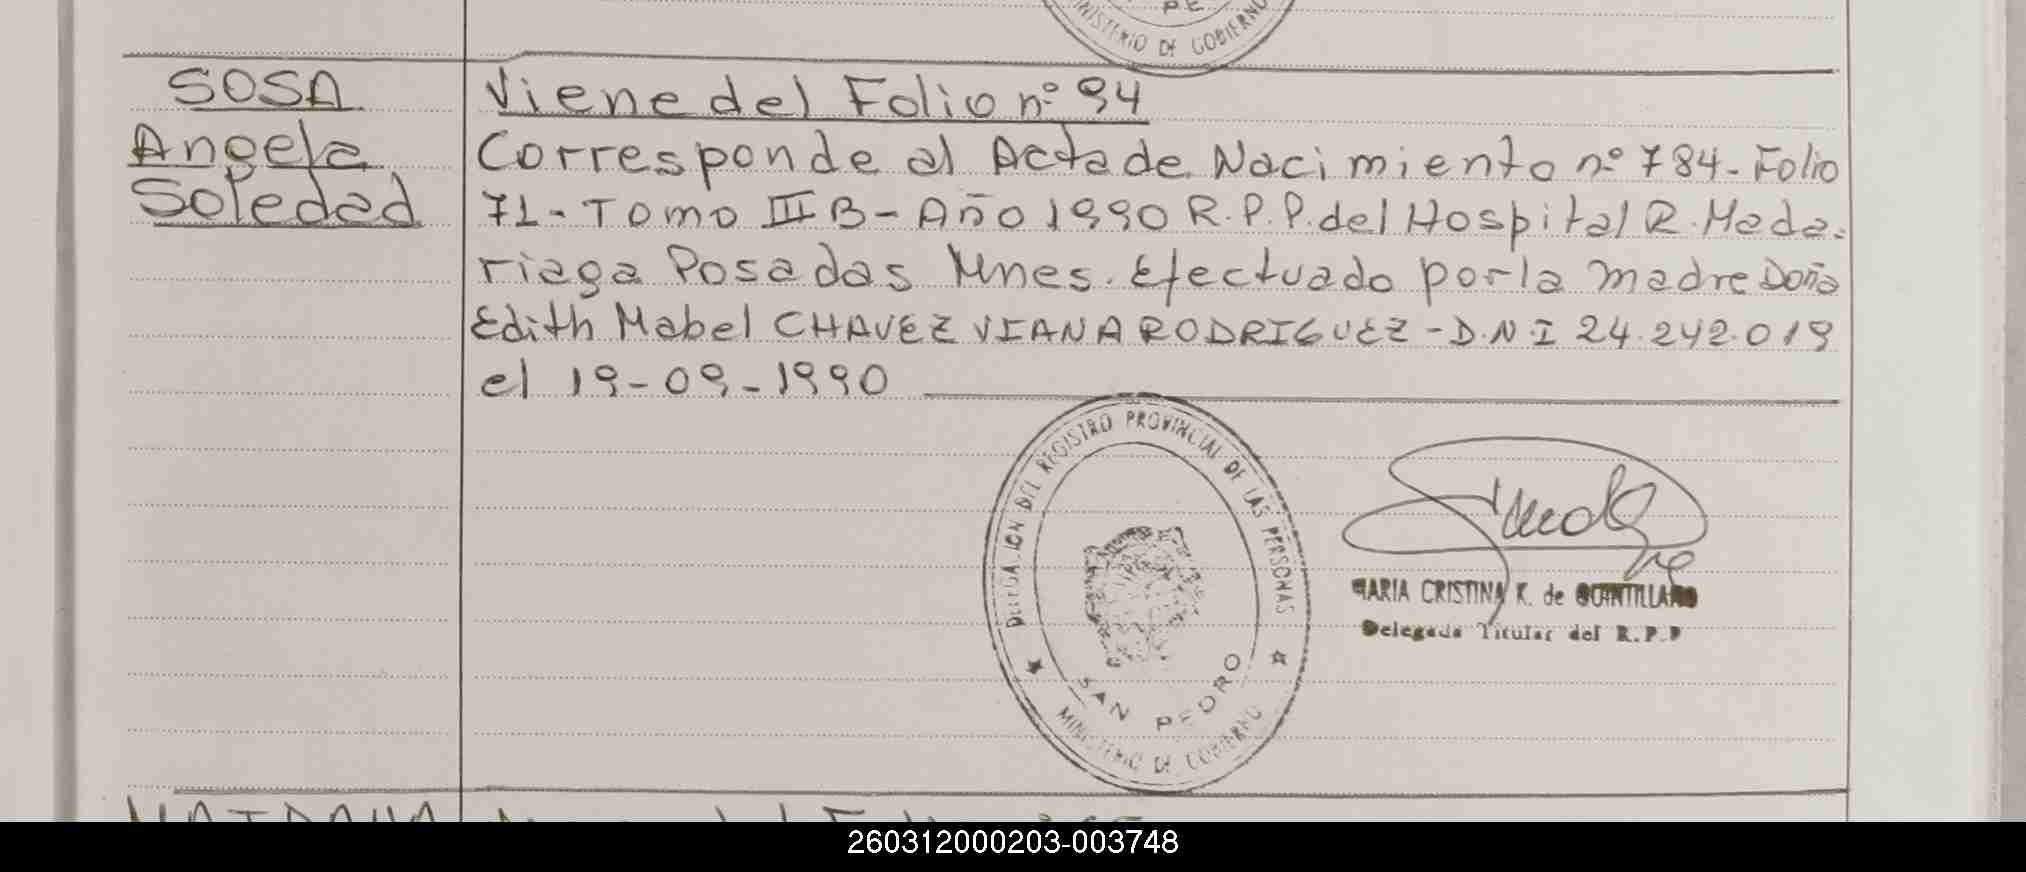 MINISTERIO DE GOBIERNO
SOSA
Angela
Soledad
Viene del Folio nº 94
Corresponde al Acta de Nacimiento nº 784 - Folio
71 - Tomo III B - Año 1990 R.P.P. del Hospital R. Mada-
riaga Posadas Mnes. Efectuado por la madre Doña
Edith Mabel CHAVEZ VIANA RODRIGUEZ - D.N.I 24.242.019
el 19-09-1990
DELEGACION DEL REGISTRO PROVINCIAL DE LAS PERSONAS
SAN PEDRO
MINISTERIO DE GOBIERNO
MARIA CRISTINA K. de QUINTILLANO
Delegada Titular del R.P.P
260312000203-003748